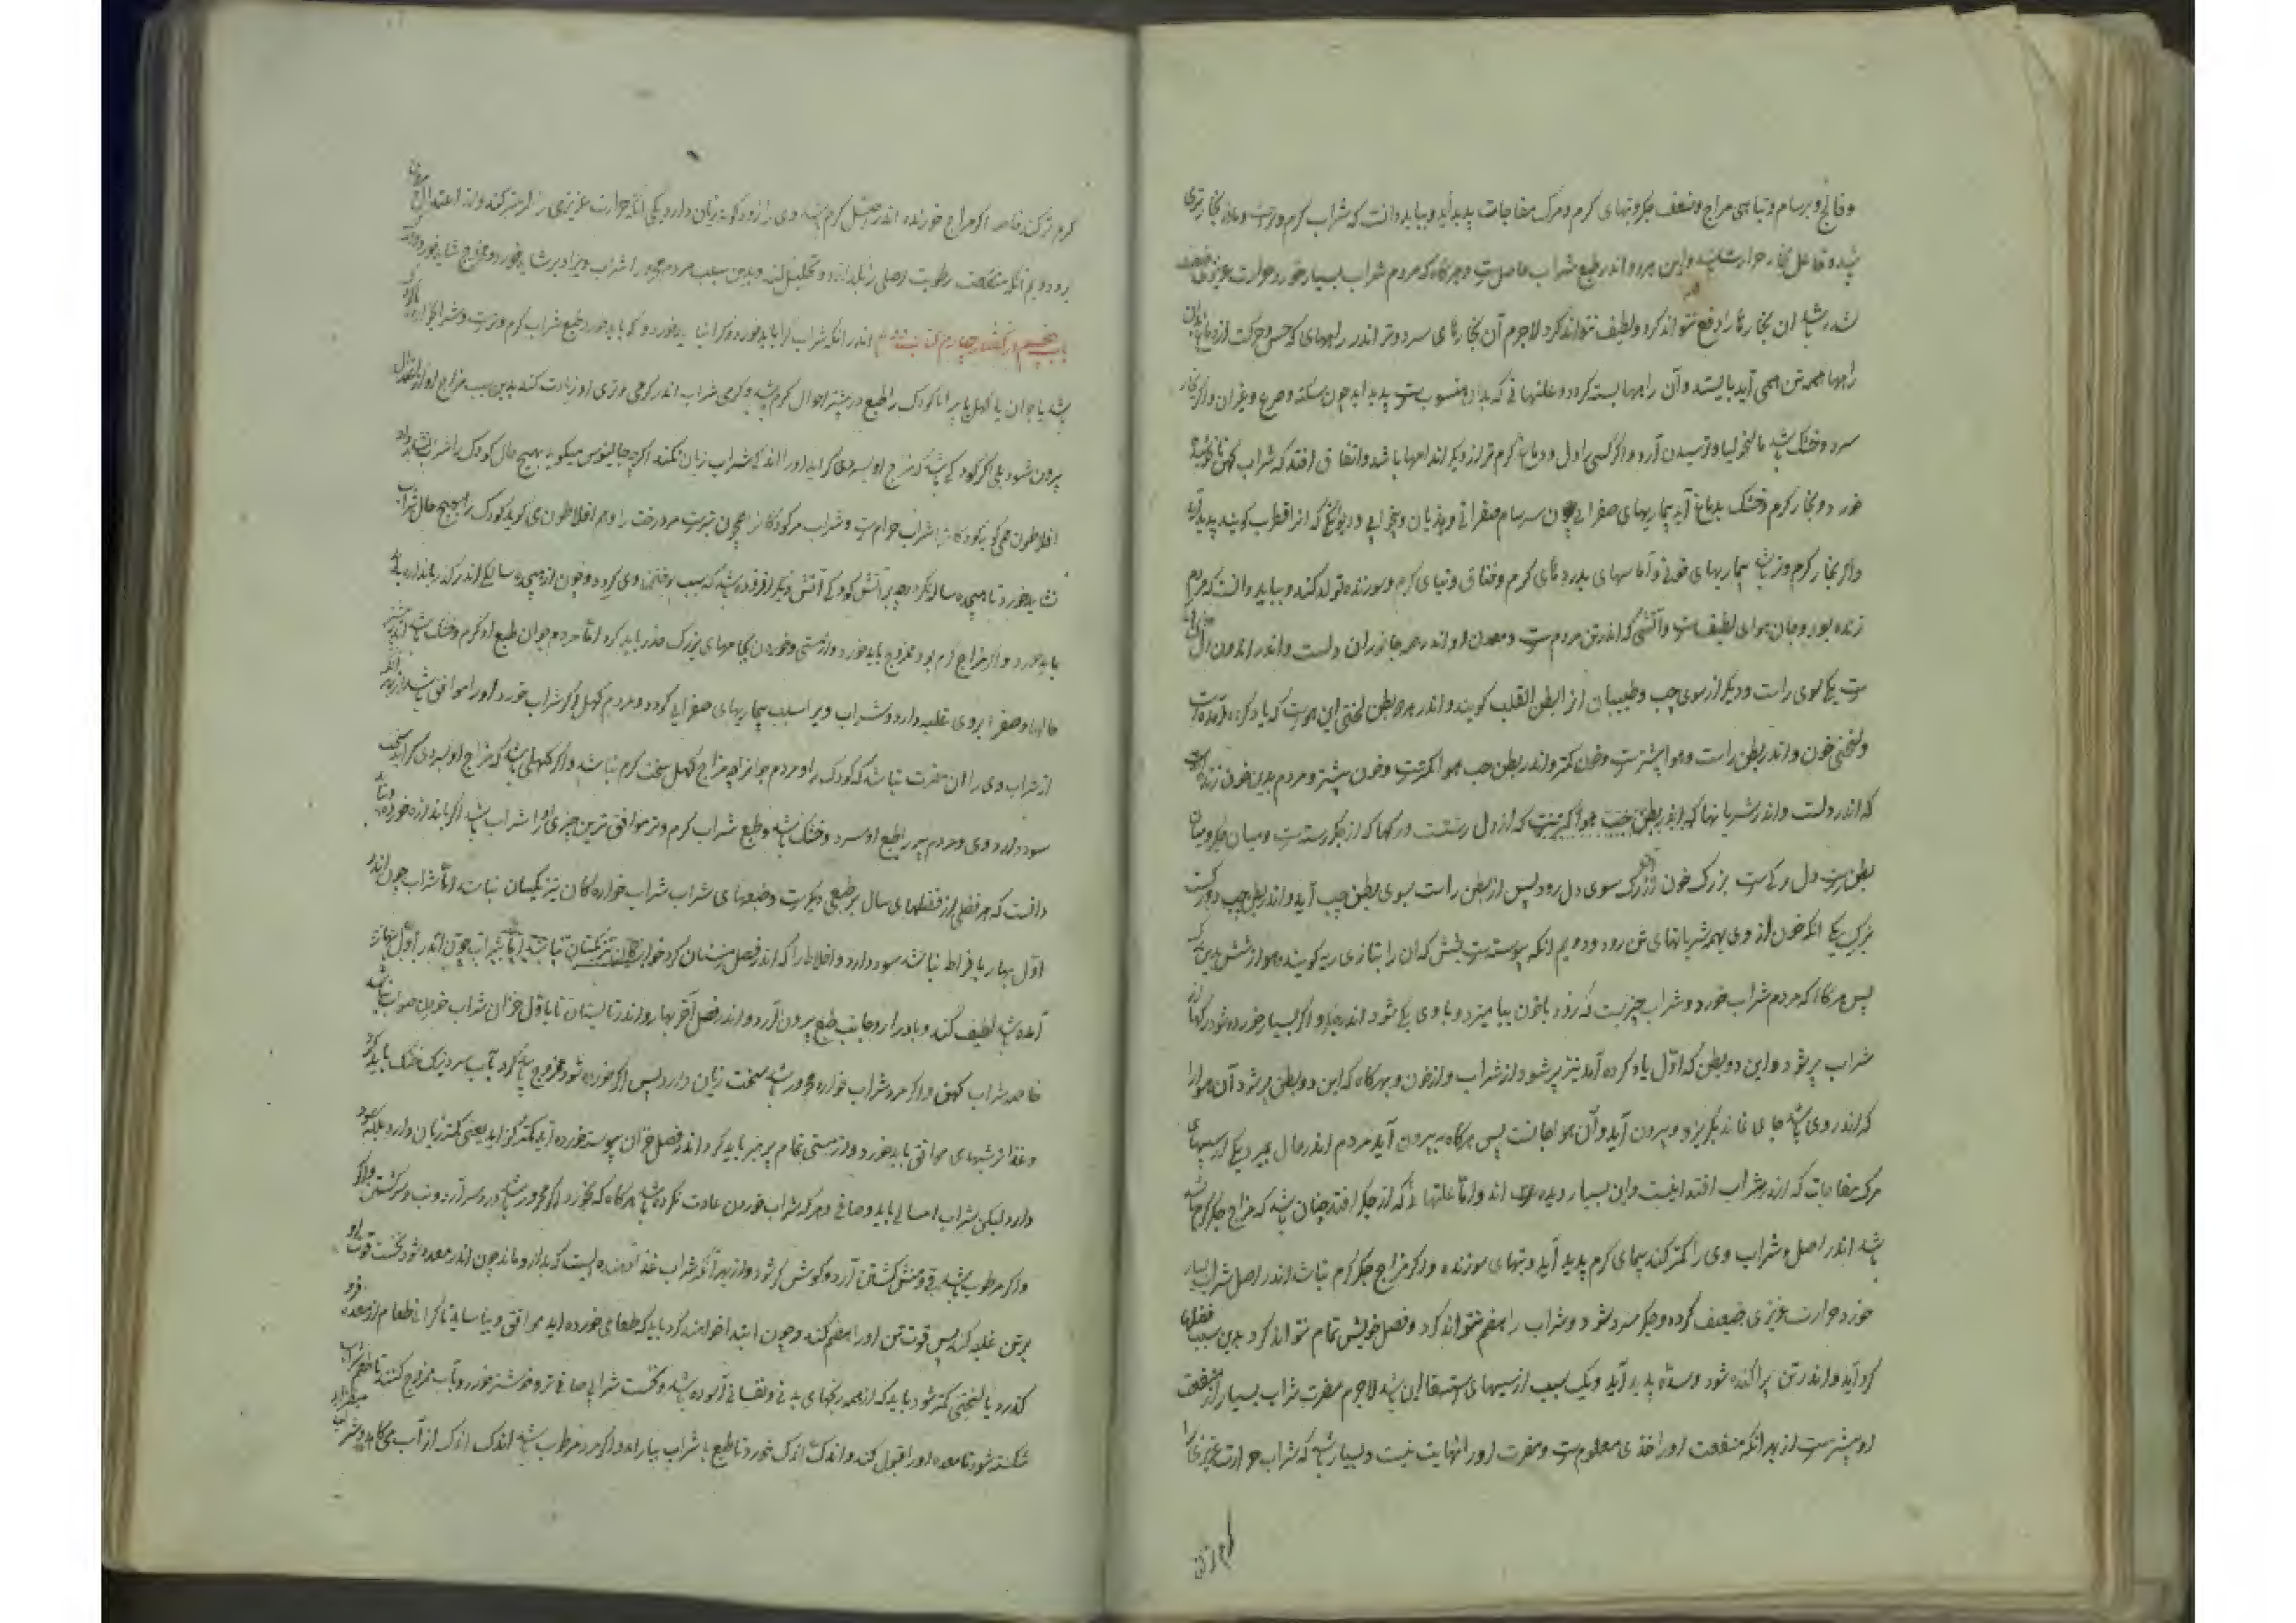 وفالج و برسام و تباهی مزاج و ضعف جگر و تبهای گرم و مرگ مفاجات پدید آید و بباید دانست که شراب گرم و ترست و ماده بخار تری
باشد و فاعل بخار حرارت باشد و این هر دو اندر طبع شراب حاصل ست و هرگاه که مردم شراب بسیار خورد حرارت غریزی ضعیف
شده باشد ان بخارها را دفع نتواند کرد و لطیف نتواند کرد لاجرم آن بخارهای سرد و تر اندر راههای که حس و حرکت از دماغ بدان
راهها همه تن همی آید بایستد و آن راهها بسته گردد و علتهائی که بدان منسوب ست پدید اید چون سکته و صرع و غیران و اگر بخار
سرد و خشک باشد مالنخولیا و ترسیدن آرد و اگر کسی را دل و دماغ گرم تر از دیگر اندامها باشد و اتفاق افتد که شراب کهن
خورد و بخار گرم و خشک بدماغ آید بیماریهای صفرائی چون سرسام صفرائی و هذیان و بیخوابی و دیوانگی که انرا قطرب گویند پدید آید
و اگر بخار گرم و تر باشد بیماریهای خونی و آماسهای بدردهای گرم و خناق و تبهای گرم و سوزنده تولد کند و بباید دانست که مردم
زنده بود و جان هوای لطیف ست و آتشی که اندر تن مردم ست و معدن او اندر همه جانوران دلست و اندر اندرون دل
ست یکی سوی راست و دیگر از سوی چپ و طبیبان انرا بطن القلب گویند و اندر هر بطن لختی این هوست که یاد کرده آمده ست
و لختی خون و اندر بطن راست هوا بیشترست و خون کمتر و اندر بطن چپ هوا کمترست و خون بیشتر و مردم بدین خون زنده
که اندر دلست و اندر شریانها که اندر بطن چپ هوا کمترست که از دل رستست و رگها که از جگر رسته ست و میان جگر و میان
بطن راست دل رگیست بزرگ خون از رگ سوی دل رود پس از بطن راست بسوی بطن چپ آید و اندر بطن چپ دو رگست
بزرگ یکی انکه خون از وی بهمه شریانهای تن رود و دویم انکه پیوسته ست بشش که ان را بتازی ریه گویند و هوا از شش بدین
پس هرگاه که مردم شراب خورد و شراب چیزیست که زود با خون بیامیزد و با وی یکی شود اندر جگر و اگر بسیار خورده شود رگها
شراب پر شود و این دو بطن که اول یاد کرده آمد نیز پر شود از شراب و از خون و هرگاه که این دو بطن پر شود آن هوا را
که اندر وی باشد جای نماند بگریزد و بیرون آید و آن هوا جانست پس هرگاه بیرون آید مردم اندر حال بمیرد یکی از سببهای
مرگ مفاجات که اندر شراب افتد اینست و این بسیار دیده اند و اما علتها که از جگر افتد چنان باشد که مزاج جگر گرم
باشد اندر اصل و شراب وی را گرمتر کند تبهای گرم پدید آید و تبهای سوزنده و اگر مزاج جگر گرم نباشد اندر اصل شراب بسیار
خورد حرارت غریزی ضعیف گردد و جگر سرد شود و شراب را هضم نتواند کرد و فعل خویش تمام نتواند کرد بدین سبب
گرد آید و اندر تن پراکنده شود و سده پدید آید و یک سبب از سببهای استسقا این باشد لاجرم مضرت شراب بسیار از منفعت
او بیشترست از بهر انکه منفعت او را حدی معلوم ست و مضرت او را نهایت نیست و بسیار باشد که شراب حرارت غریزی را
گرم تر کند خاصه اگر مزاج خورنده اندر اصل گرم باشد وی را از دو گونه زیان دارد یکی انکه حرارت غریزی را گرمتر کند و از اعتدال
برد و دویم انکه رطوبت اصلی را بگدازد و تحلیل کند و بدین سبب مردم محرور را شراب ویژه دیر شاید خورد و ممزوج شاید خورد
باب پنجم از گفتار چهارم اندر انکه شراب کرا باید خورد و کرا نباید خورد و که باید خورد طبع شراب گرم و ترست و شراب خواره
باشد یا جوان یا کهل یا پیر اما کودک را طبع در بیشتر احوال گرم باشد و گرمی شراب اندر گرمی و تری او زیادت کند بدین سبب مزاج او از اعتدال
بیرون شود بلی اگر کودکی باشد که مزاج او بسردی گراید او را اندکی شراب زیان نکند اگرچه جالینوس میگوید بهیچ حال کودک را شراب نشاید داد
افلاطون همی گوید کودکانرا شراب حرام ست و شراب مر کودکانرا همچون تبرست مر درخت را و هم افلاطون می گوید کودک را بهیچ حال شراب
نشاید خورد تا هیجده سالگی آتش کودکی آتش دیگر افزوده باشد که سبب سوختن وی گردد و چون از هیجده سالگی اندر گذر باندازه
باید خورد و اگر مزاج گرم بود ممزوج باید خورد و از مستی و خوردن بجامهای بزرگ حذر باید کرد اما مردم جوان طبع او گرم و خشک باشد اندر بیشتر
حالها و صفرا بر وی غلبه دارد و شراب ویرا سبب بیماریهای صفرائی گردد و مردم کهل اگر شراب خورد او را موافق باشد از بهر انکه
از شراب وی را ان مضرت نباشد که کودک را و مردم جوانرا چه مزاج کهل سخت گرم نباشد و اگر کهلی باشد که مزاج او بسردی گراید سخت
سود دارد وی و مردم پیر را طبع او سرد و خشک باشد و طبع شراب گرم و تر موافق ترین چیزی او را شراب باشد اگر باندازه خورد
دانست که هر فصلی از فصلهای سال بر طبعی دیگرست و طبعهای شراب شراب خوارگان نیز یکسان نباشد اما شراب چون اندر
اول بهار بافراط نباشد سود دارد و اخلاط را که اندر فصل زمستان گرد
آمده باشد لطیف کند و بادرار و جانب طبع بیرون آرد و اندر فصل آخر بهار و اندر تابستان تا باول خزان شراب خوردن صواب نباشد
خاصه شراب کهن و اگر مرد شراب خواره محرور باشد سخت زیان دارد پس اگر خورده شود ممزوج باید کرد بآب سرد
و غذا ترشیهای موافق باید خورد و از مستی تمام پرهیز باید کرد و اندر فصل خزان پیوسته خورده آید یعنی کمتر زیان دارد بلکه سود
دارد لیکن شراب امسالی باید و صافی و هر که شراب خوردن عادت نکرده باشد هرگاه که بخورد اگر محرور باشد درد سر آرد و تب و سرگشتن و اگر
و اگر مرطوب باشد قی و منش گشتن آرد و گوش کر شود و از بهر آنکه شراب غذا نیست که بدان چون اندر معده شود نخست قوت او
بر تن غلبه کند پس قوت تن او را هضم کند و چون ابتدا خواهند کرد باید که طعامی خورده اید موافق و بیاساید تا گرانی طعام از معده فرو
گذرد یا لختی کمتر شود و باید که از همه رنجهای بدنی و نفسانی آسوده باشد و نخست شرابی صافی تر و خوشتر خورد و بآب ممزوج کنند تا طعم شراب
شکسته شود تا معده او را قبول کند و اندک اندک خورد تا طبع با شراب بیارامد و اگر مرد مرطوب باشد اندک اندک از آب می کاهد و شراب